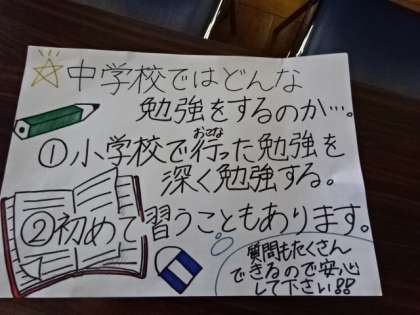 ☆中学校ではどんな
勉強をするのか…。
①小学校で行った勉強を
おこな
深く勉強する。
②初めて習うこともあります。
質問もたくさん
できるので安心
して下さい!!